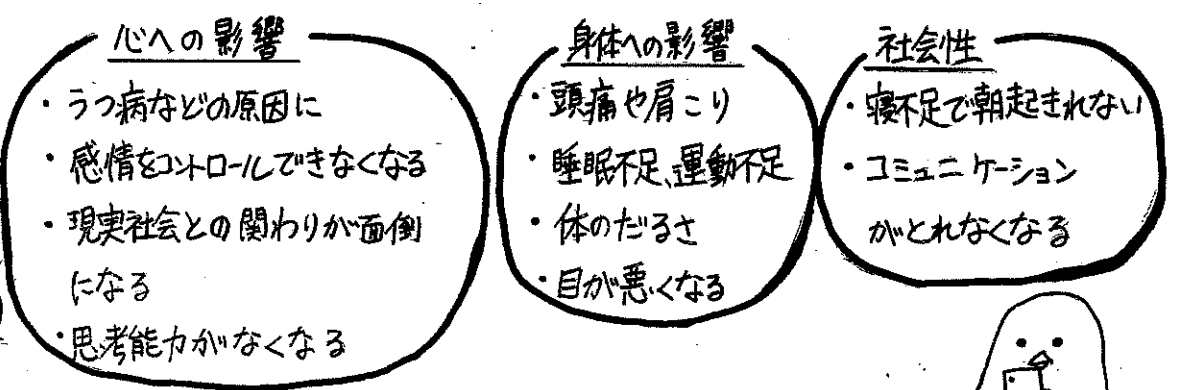 心への影響
・うつ病などの原因に
・感情をコントロールできなくなる
・現実社会との関わりが面倒
になる
・思考能力がなくなる
身体への影響
・頭痛や肩こり
・睡眠不足、運動不足
・体のだるさ
・目が悪くなる
社会性
・寝不足で朝起きれない
・コミュニケーション
がとれなくなる